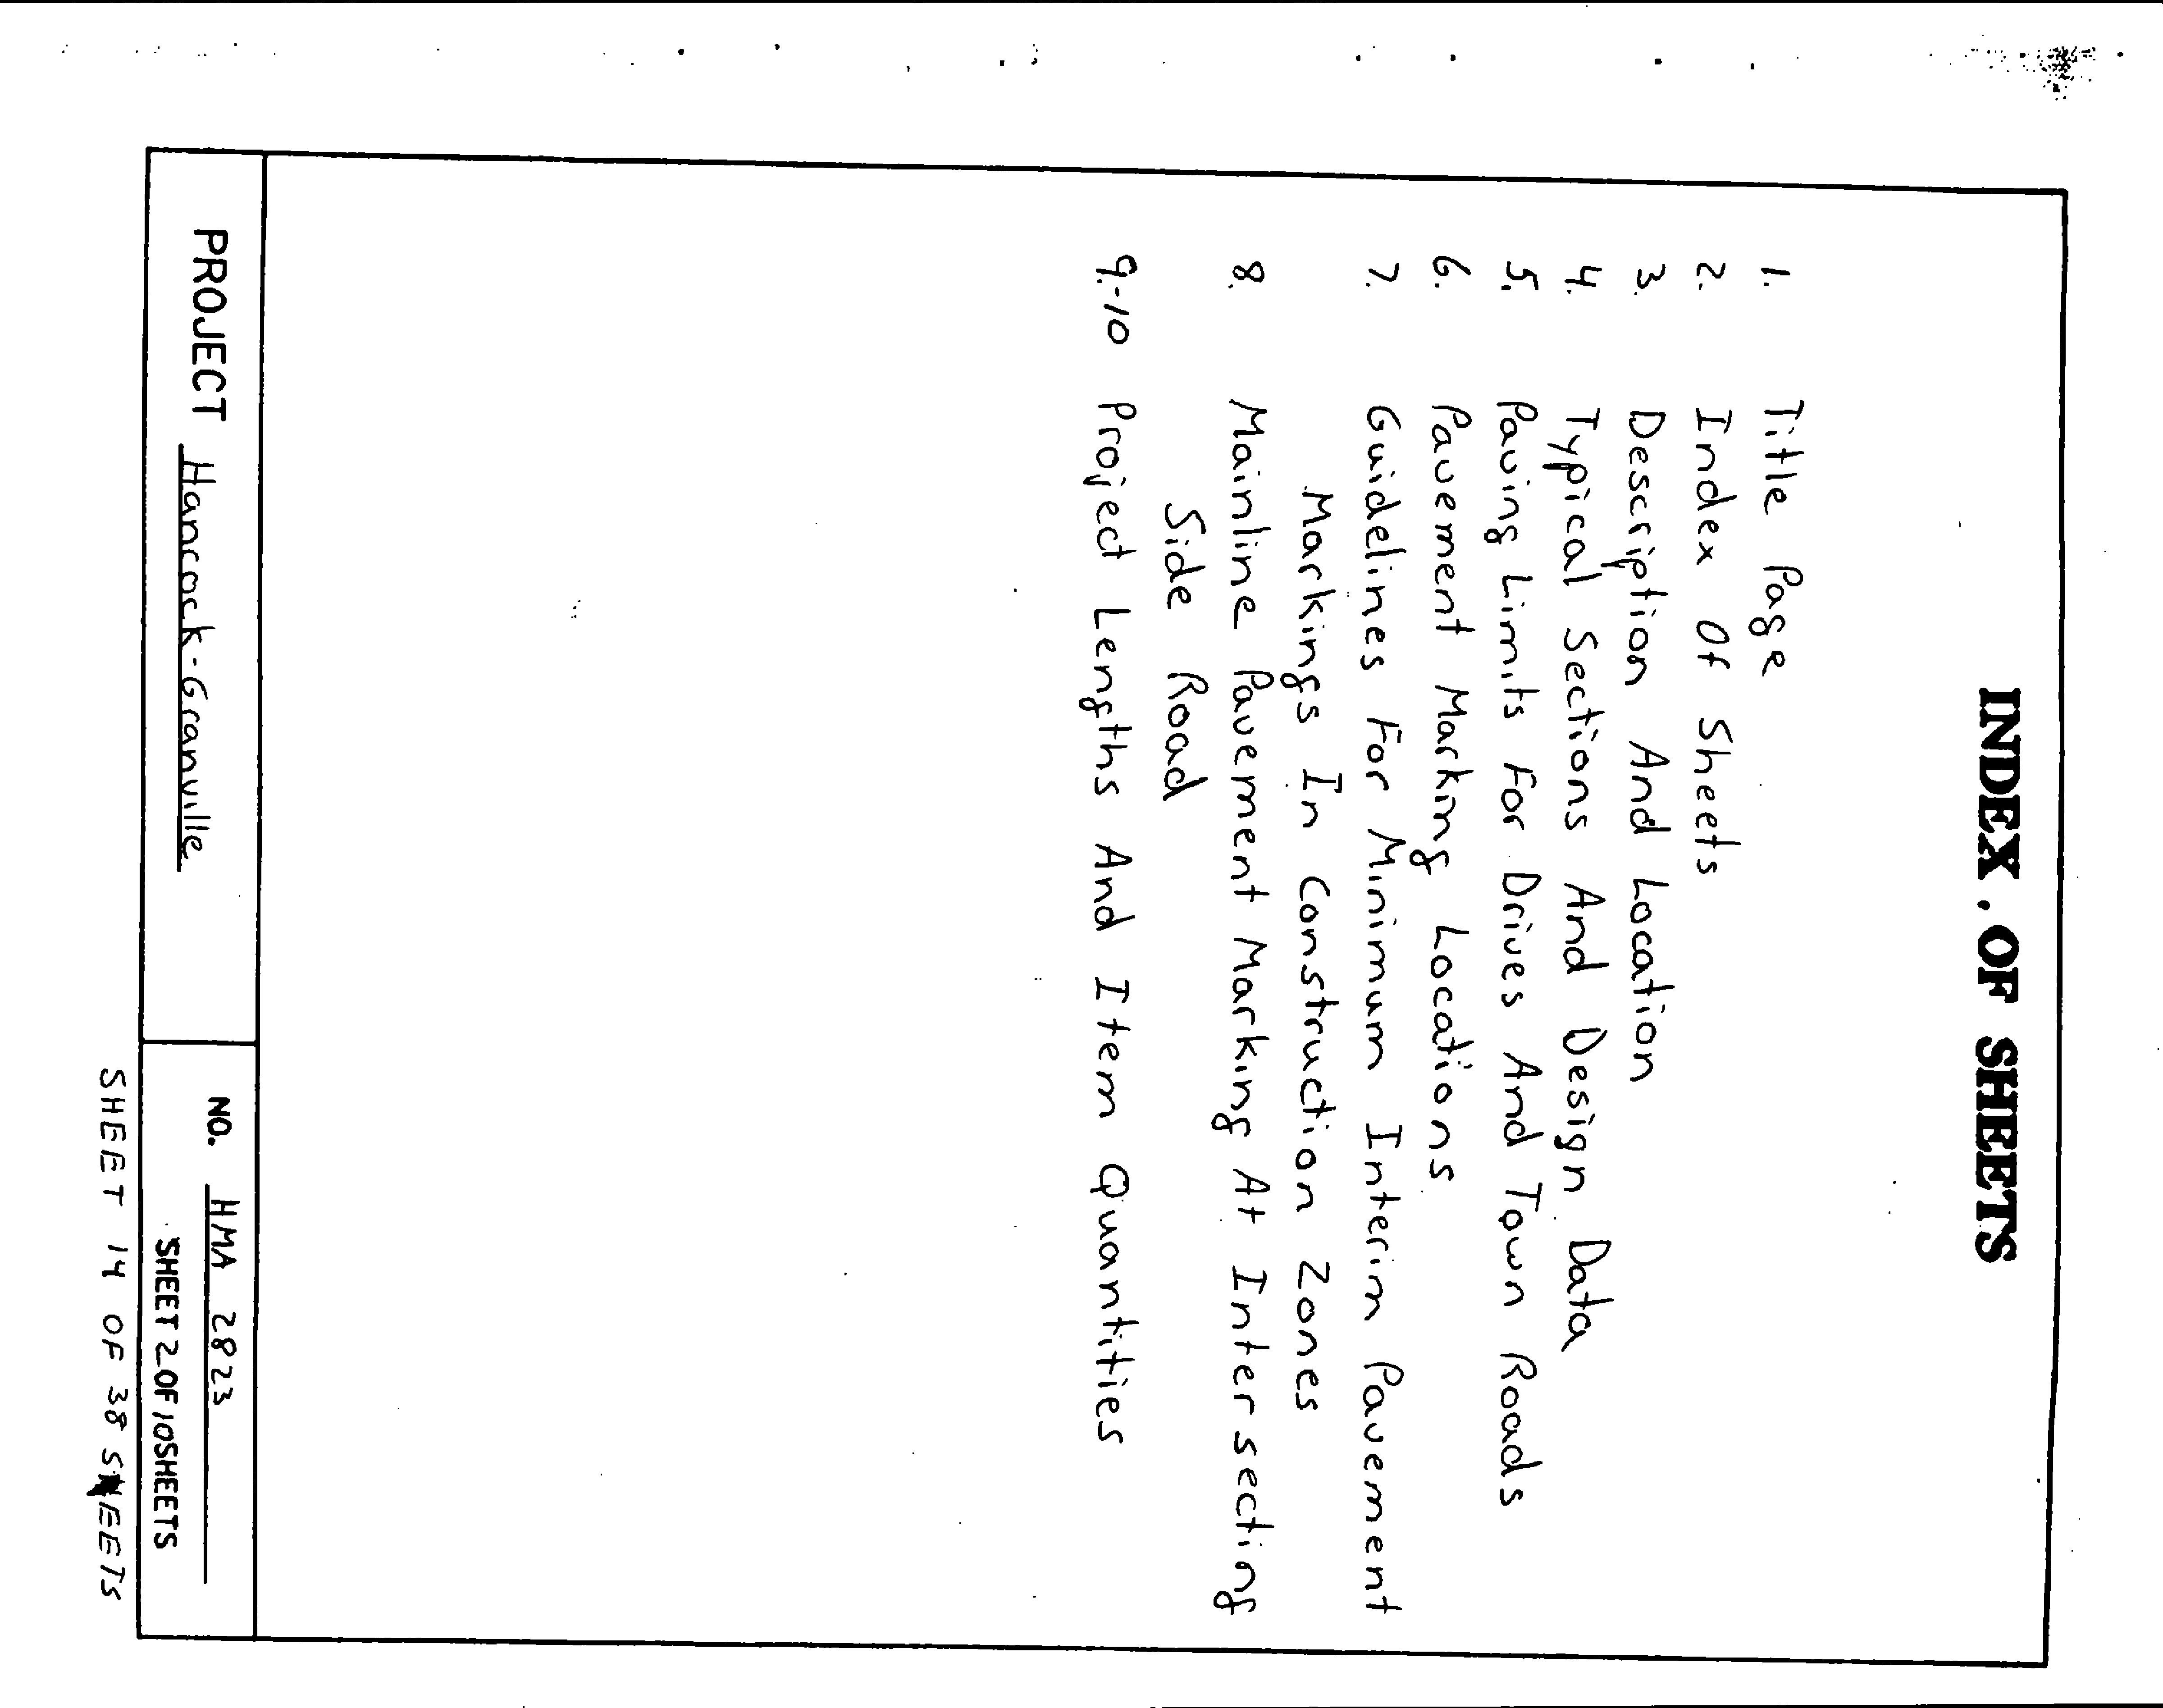 INDEX OF SHEETS
1. Title Page
2. Index Of Sheets
3. Description And Location
4. Typical Sections And Design Data
5. Paving Limits For Drives And Town Roads
6. Pavement Marking Locations
7. Guidelines For Minimum Interim Pavement
Markings In Construction Zones
8. Mainline Pavement Marking At Intersecting
Side Road
9.-10 Project Lengths And Item Quantities
PROJECT Hancock-Granville
NO. HMA 2823
SHEET 2 OF 10 SHEETS
SHEET 14 OF 38 SHEETS